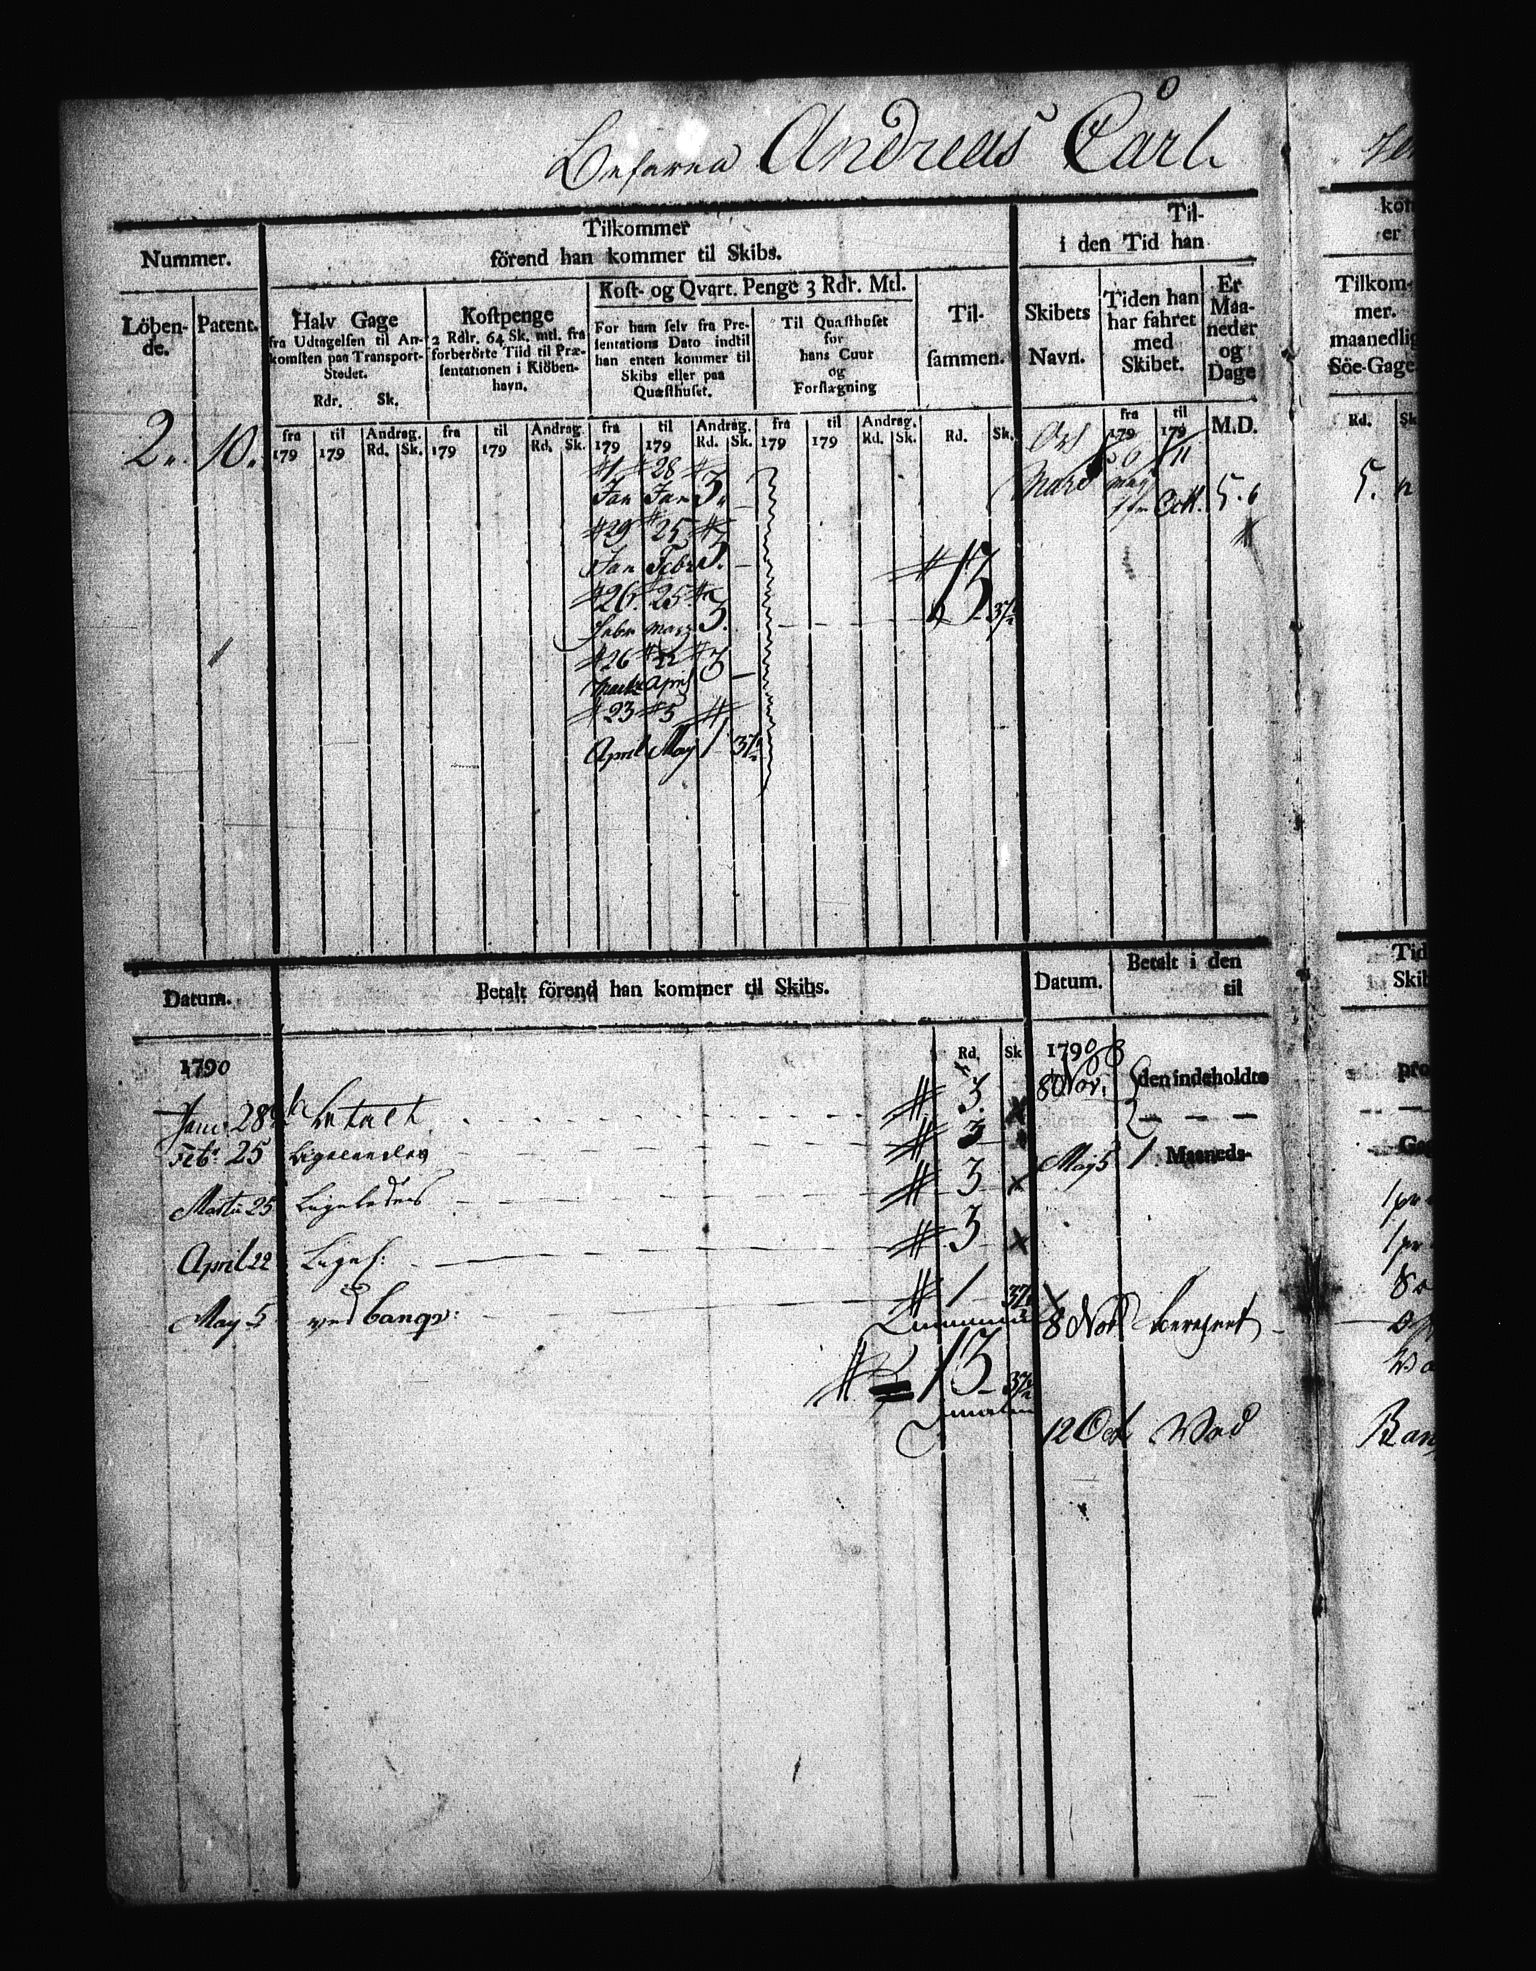 Befarne Andreas Carl
Tilkommer
förend han kommer til Skibs.
Nummer.
Löben-
de.
Patent.
Halv Gage
fra Udtagelsen til An-
komsten paa Transport-
Stedet.
Rdr. Sk.
Kostpenge
2 Rdlr. 64 Sk. mtl. fra
forberörte Tiid til Præ-
sentationen i Kiöben-
havn.
Kost- og Qvart. Penge 3 Rdr. Mtl.
For ham selv fra Pre-
sentations Dato indtil
han enten kommer til
Skibs eller paa
Quæsthuset.
Til Quæsthuset
for
hans Cuur
og
Forflægning
Til-
sammen.
Til-
i den Tid han
Skibets
Navn.
Tiden han
har fahret
med
Skibet.
Er
Maa-
neder
og
Dage
kom
er
Tilkom-
mer.
maanedlig
Söe-Gage.
fra 179 til 179 Andrag. Rd. Sk.
fra 179 til 179 Andrag. Rd. Sk.
fra 179 til 179 Andrag. Rd. Sk.
fra 179 til 179 Andrag. Rd. Sk.
Rd. Sk.
fra 179 til 179 M.D.
Rd. Sk
2. 10.
1 28
Jan Jan 3.
29 25
Jan Febr 3. –
26 25
Febr Marz 3.
26 22
Martz April 3 –
23 5
April May 1 37½
13 37½
6 11
May Octb. 5. 6
5.
Datum.
Betalt förend han kommer til Skibs.
Datum.
Betalt i den
til
Tid
Skib
1790
Rd. Sk
Janv. 28 betalt 3.
Feb. 25 Ligeleedes 3
Martii 25 Ligeledes 3
April 22 Ligel: 3
May 5 ved banqv: 1 37½
13 37½
1790
8 Nov: den indeholdte
pro
May 5 1 Maaneds-
Ga
1 pr
1 pr
8 Nov beregnet
12 Oct Ved
Ban